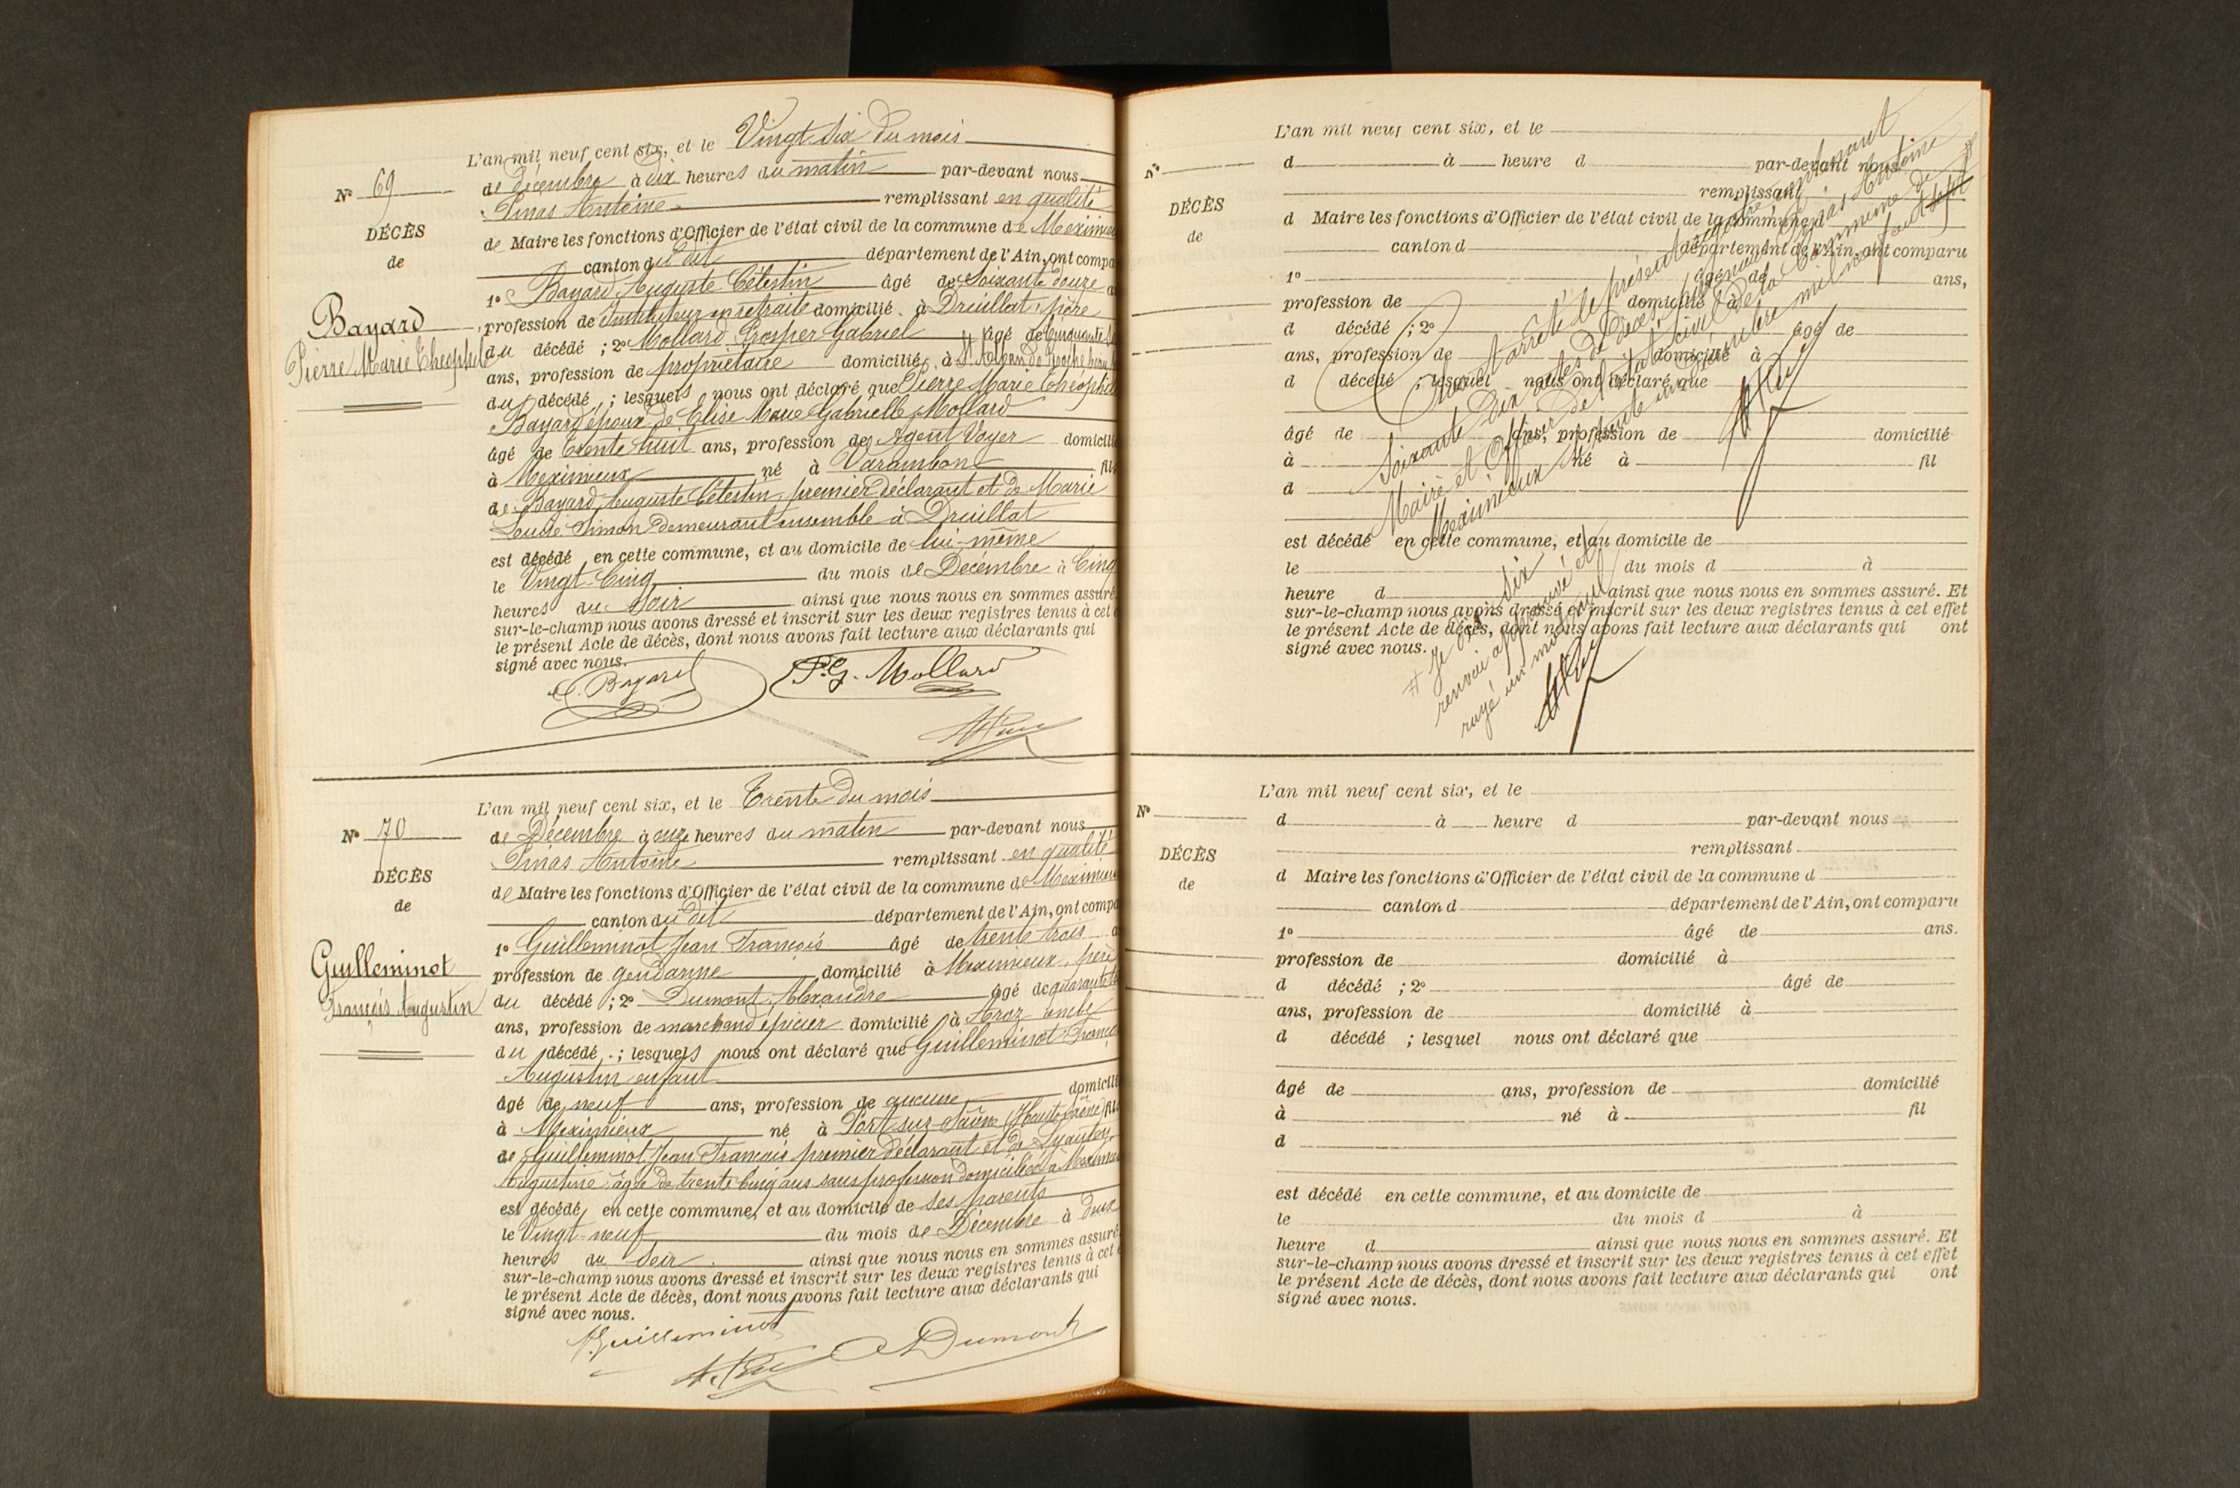 L'an mil neuf cent six, et le Vingt-six du mois
de décembre à dix heures du matin par-devant nous
Pinas Antoine remplissant en qualité
de Maire les fonctions d'Officier de l'état civil de la commune de Meximieux
canton du dit département de l'Ain, ont compa
1º Bayard Auguste Célestin âgé de Soixante douze a
profession de instituteur en retraite domicilié à Druillat, père
du décédé ; 2º Mollard Prosper Gabriel âgé de Cinquante
ans, profession de propriétaire domicilié à St Alban de
du décédé ; lesquels nous ont déclaré que Pierre Marie Théophile
Bayard époux de Elise Marie Gabrielle Mollard
âgé de trente huit ans, profession de Agent Voyer domicilié
à Meximieux né à Varambon fils
de Bayard Auguste Célestin, premier déclarant et de Marie
Louise Simon demeurant ensemble à Druillat
est décédé en cette commune, et au domicile de lui-même
le Vingt-Cinq du mois de Décembre à Cinq
heures du Soir ainsi que nous nous en sommes assuré.
sur-le-champ nous avons dressé et inscrit sur les deux registres tenus à cet e
le présent Acte de décès, dont nous avons fait lecture aux déclarants qui
signé avec nous.
C. Bayard P. G. Mollard
Nº 69
DÉCÈS
de
Bayard
Pierre Marie Théophile
L'an mil neuf cent six, et le Trente du mois
de Décembre à onze heures du matin par-devant nous
Pinas Antoine remplissant en qualité
de Maire les fonctions d'Officier de l'état civil de la commune de Meximieux
canton du dit département de l'Ain, ont compa
1º Guilleminot Jean François âgé de trente trois a
profession de gendarme domicilié à Meximieux, père
du décédé ; 2º Dumont Alexandre âgé de quarante
ans, profession de marchand épicier domicilié à Aroz oncle
du décédé ; lesquels nous ont déclaré que Guilleminot Franço
Augustin enfant
âgé de neuf ans, profession de aucune domicilié
à Meximieux né à Port sur Saône (Haute Saône) fils
de Guilleminot Jean François premier déclarant et de Lyautey
Augustine âgée de trente Cinq ans sans profession domiciliée à Meximieux
est décédé en cette commune, et au domicile de ses parents
le Vingt-neuf du mois de Décembre à onze
heures du Soir ainsi que nous nous en sommes assuré
sur-le-champ nous avons dressé et inscrit sur les deux registres tenus à cet e
le présent Acte de décès, dont nous avons fait lecture aux déclarants qui
signé avec nous.
Guilleminot
Dumont
Nº 70
DÉCÈS
de
Guilleminot
François Augustin
L'an mil neuf cent six, et le
d à heure d par-devant nous
remplissant
d Maire les fonctions d'Officier de l'état civil de la commune d
canton d département de l'Ain, ont comparu
1º âgé de ans,
profession de domicilié à
d décédé ; 2º âgé de
ans, profession de domicilié à
d décédé ; lesquel nous ont déclaré que
âgé de ans, profession de domicilié
à né à fil
d
est décédé en cette commune, et au domicile de
le du mois d à
heure d ainsi que nous nous en sommes assuré. Et
sur-le-champ nous avons dressé et inscrit sur les deux registres tenus à cet effet
le présent Acte de décès, dont nous avons fait lecture aux déclarants qui ont
signé avec nous.
Nº
DÉCÈS
de
Clos et arrêté le présent registre contenant
Soixante Dix actes de Décès, par nous Pinas Antoine
Maire et Officier de l'état civil de la Commune de
Meximieux le trente un Décembre mil neuf cent
# six
renvoi approuvé et
rayé un mot nul
L'an mil neuf cent six, et le
d à heure d par-devant nous
remplissant
d Maire les fonctions d'Officier de l'état civil de la commune d
canton d département de l'Ain, ont comparu
1º âgé de ans.
profession de domicilié à
d décédé ; 2º âgé de
ans, profession de domicilié à
d décédé ; lesquel nous ont déclaré que
âgé de ans, profession de domicilié
à né à fil
d
est décédé en cette commune, et au domicile de
le du mois d à
heure d ainsi que nous nous en sommes assuré. Et
sur-le-champ nous avons dressé et inscrit sur les deux registres tenus à cet effet
le présent Acte de décès, dont nous avons fait lecture aux déclarants qui ont
signé avec nous.
Nº
DÉCÈS
de